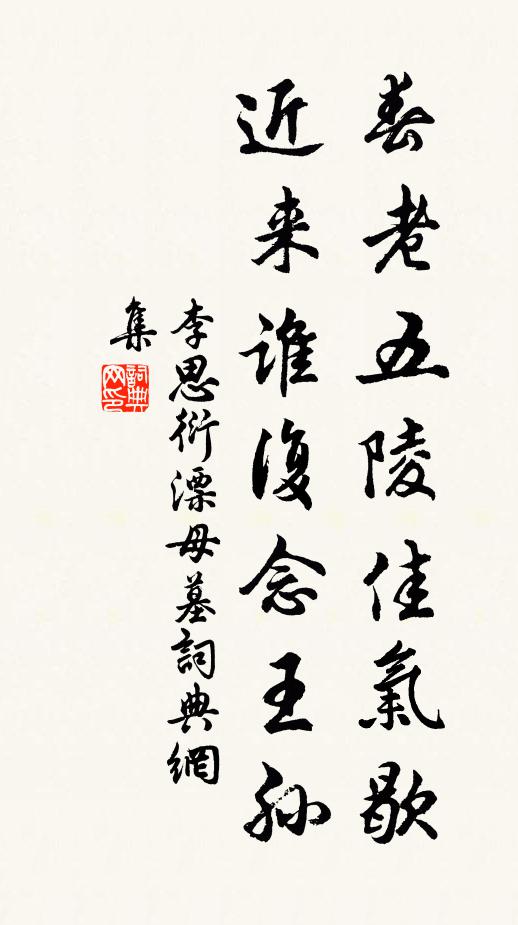 春老五陵佳氣歇
近来誰復念王孙
李思衍漂母墓詞典網
集
詞典
网印